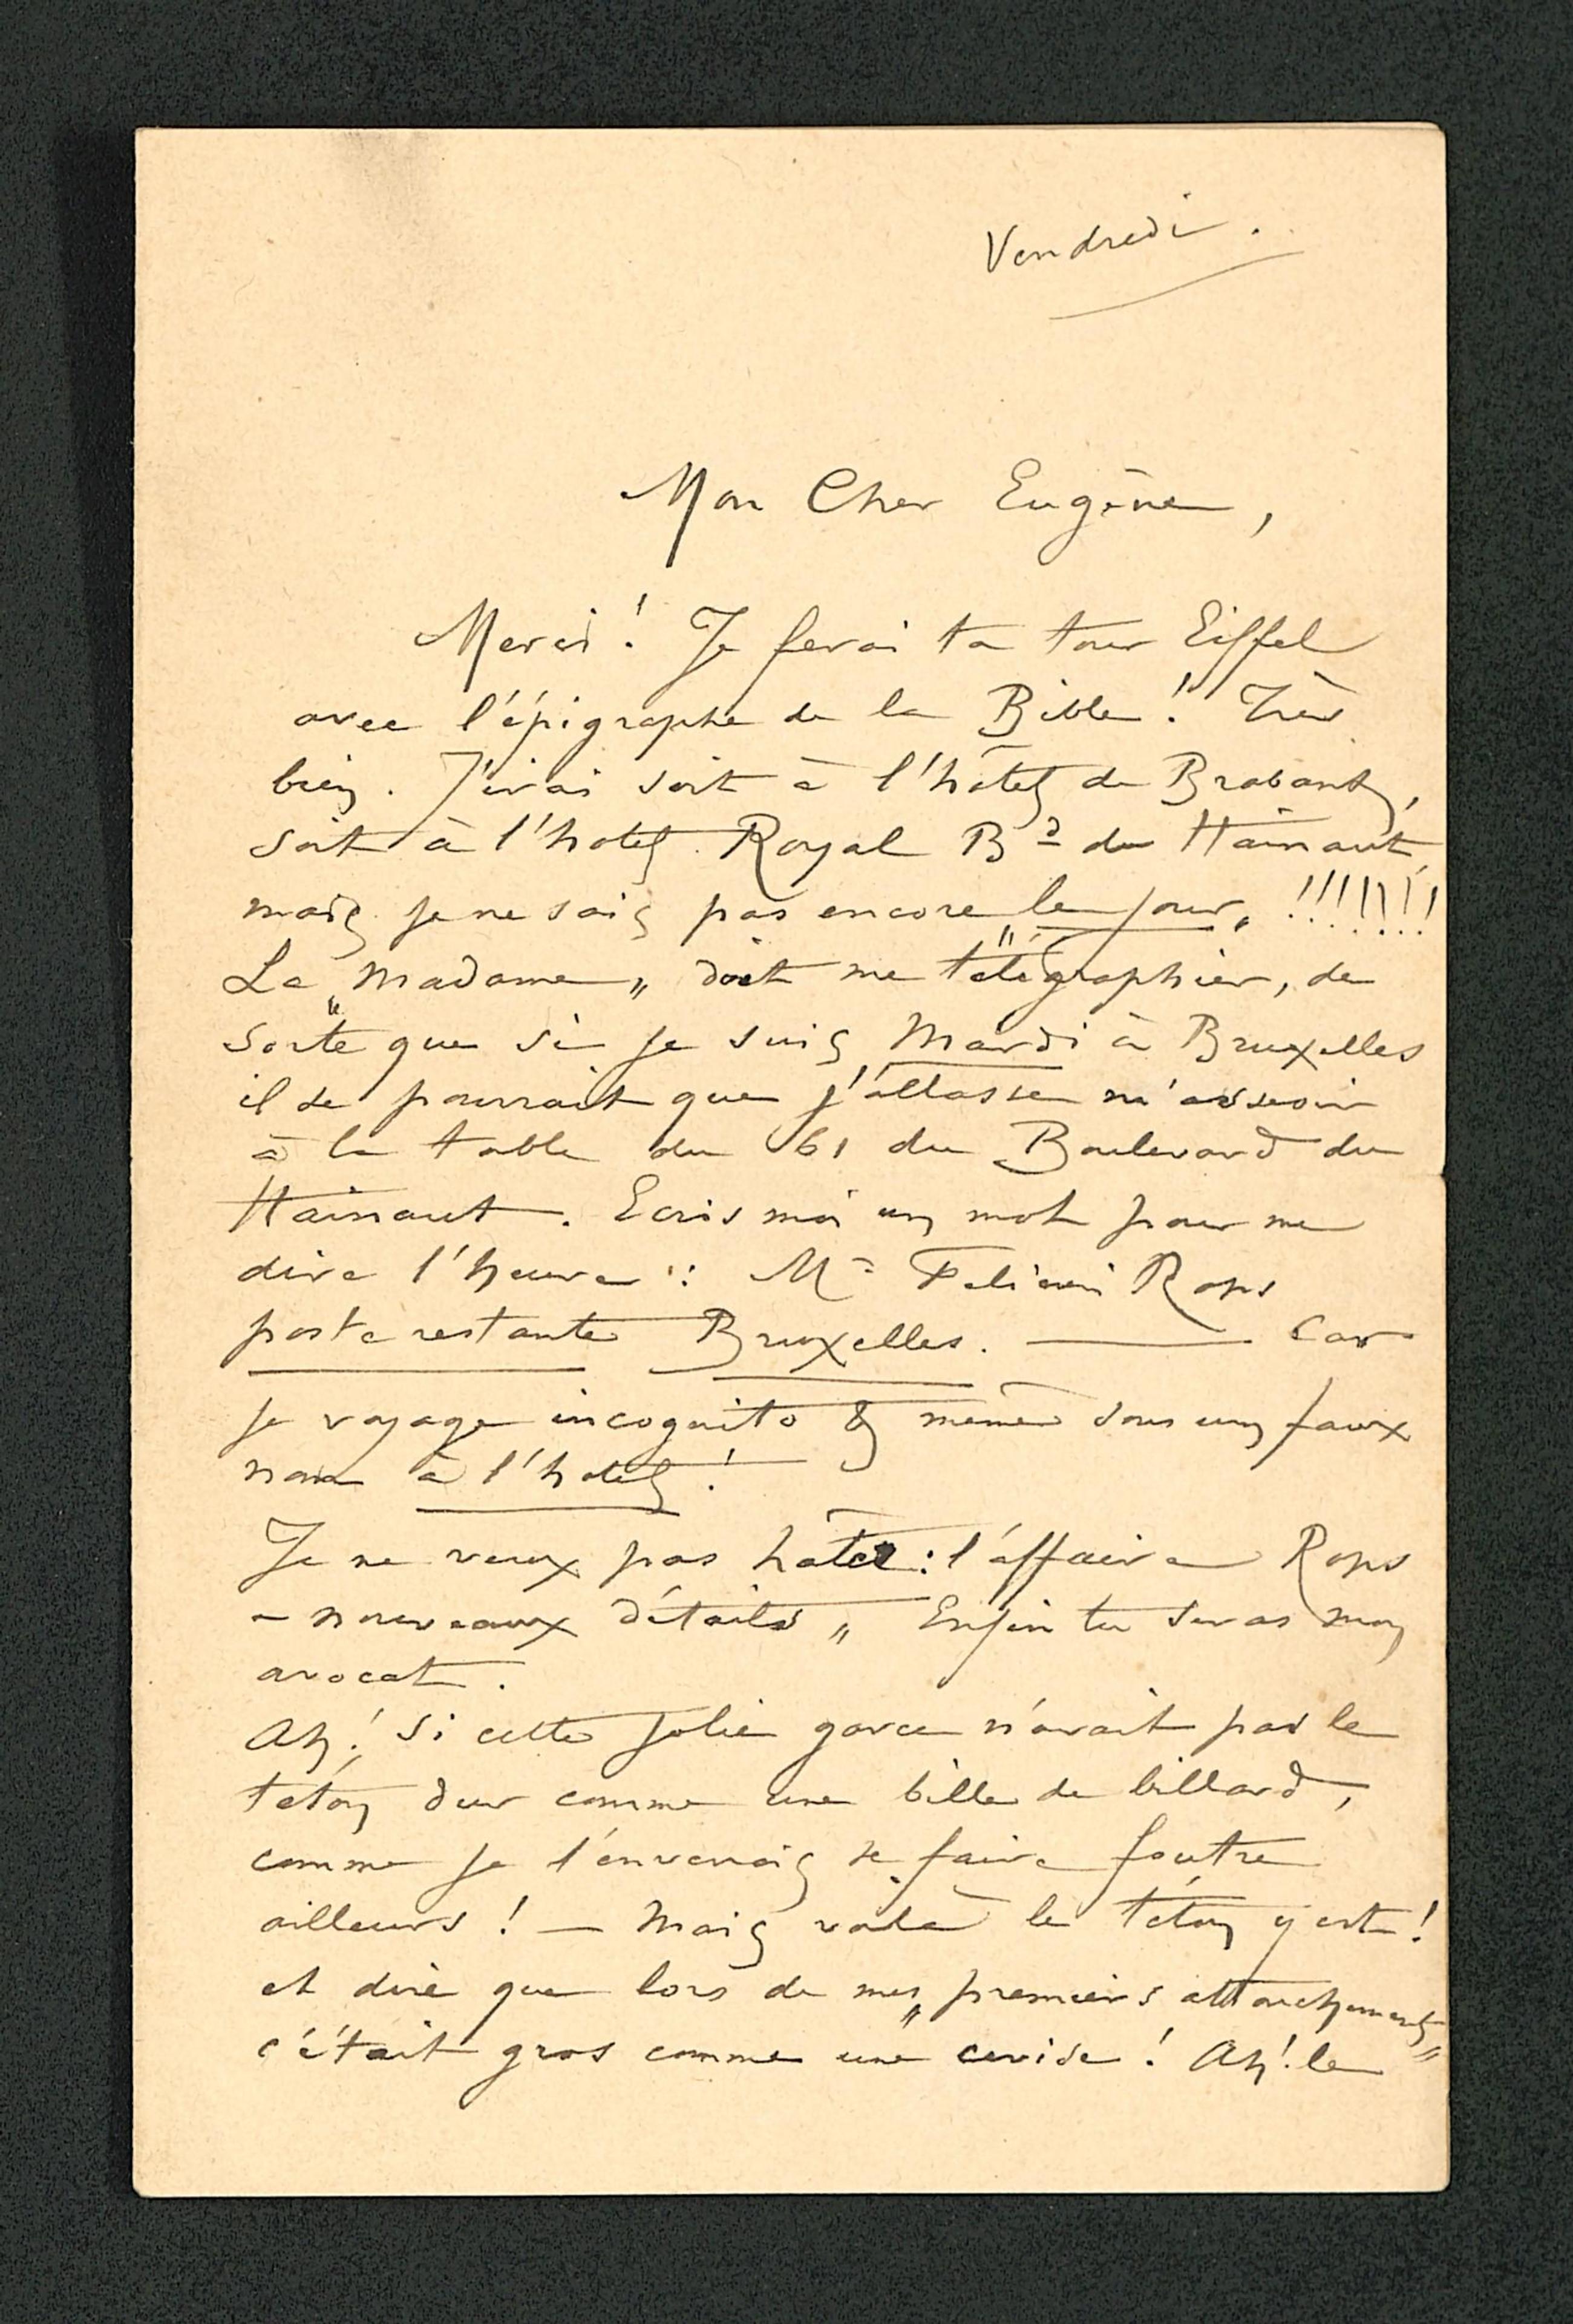 Vendredi.
Mon Cher Eugène,
Merci! Je ferai ta tour Eiffel
avec l'épigraphe de la Bible! Très
bien. J'irai soit à l'hôtel de Brabant,
soit à l'hotel Royal Bd du Hainaut,
mais je ne sais pas encore „le jour„ !!!!!!!
La „Madame„ doit me télégraphier, de
sorte que si je suis Mardi à Bruxelles
il se pourrait que j'allasse m'asseoir
à la table du 61 du Boulevard du
Hainaut. Ecris moi un mot pour me
dire l'heure: Mr Felicien Rops
poste restante Bruxelles. — Car
je voyage incognito & même sous un faux
nom à l'hotel!
Je ne veux pas hâter: l'affaire Rops
– nouveaux détails „ Enfin tu seras mon
avocat.
Ah! si cette jolie garce n'avait pas le
teton dur comme une bille de billard,
comme je l'enverrais se faire foutre
ailleurs! — Mais voilà le téton y est!
et dire que lors de mes „premiers attouchements„
c'était gros comme une cerise! Ah! le